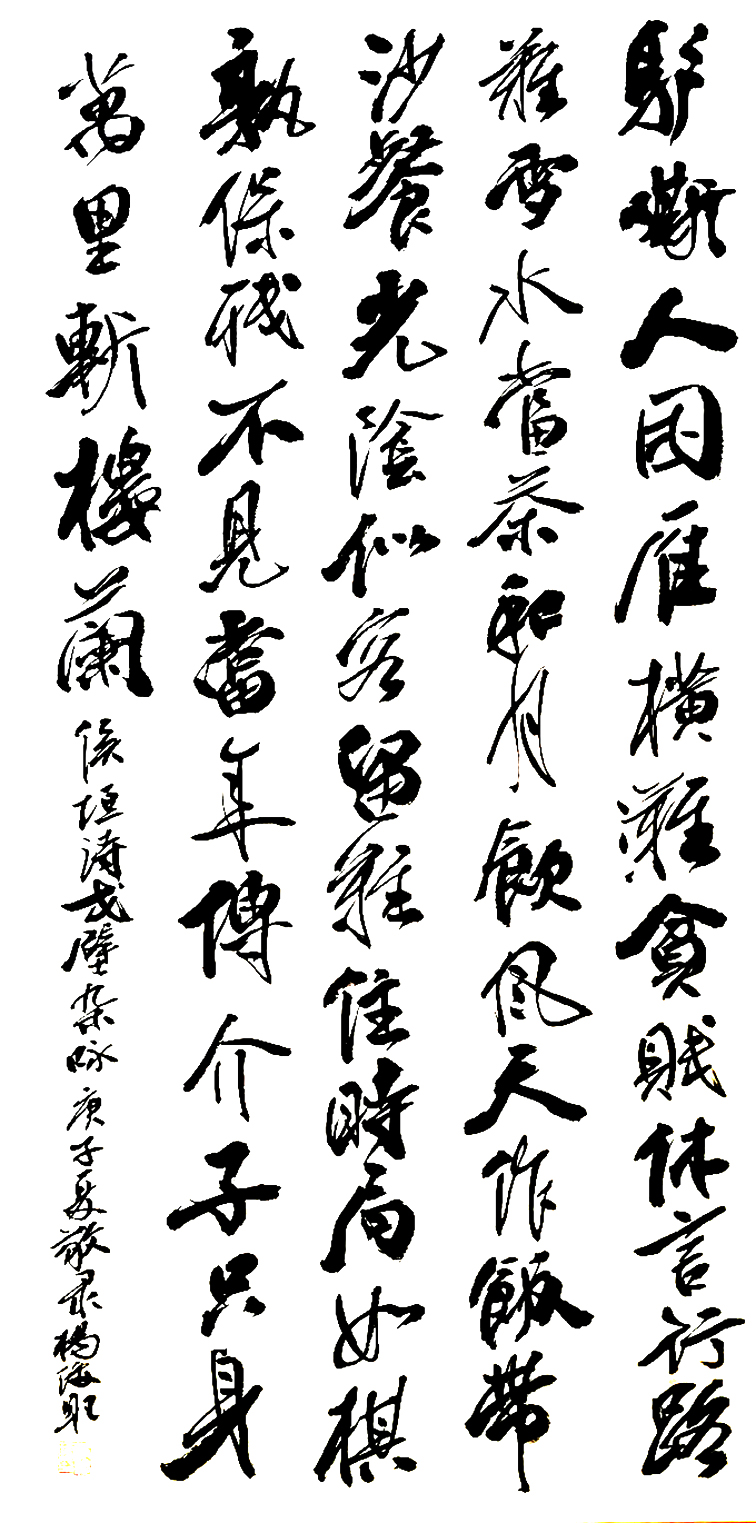 驴嘶人困雁横灘貧賤休言行路
難雪水當茶和月飲風天作飯帶
沙餐光陰似客留難住時局如棋
孰保殘不見當年傅介子只身
萬里斬樓蘭 侯垣詩戈壁杂咏 庚子夏敬录楊海